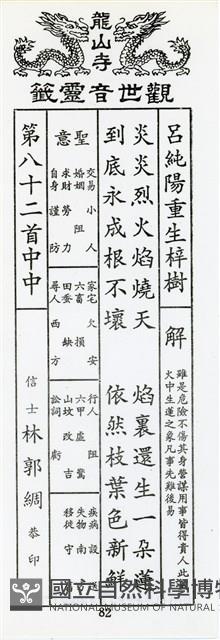 龍山寺
觀世音靈籤
呂純陽重生梓樹
解
雖是危險不傷其身營謀用事皆得貴人此卦
火中生蓮之象凡事先難後易
炎炎烈火焰燒天 焰裏還生一朵蓮
到底永成根不壞 依然枝葉色新鮮
聖意
交易 小人
婚姻 阻人
求財 勞力
自身 謹防
家宅 欠安
六畜 損
田蚕 缺
尋人 西方
行人 阻
六甲 虛驚
山墳 改吉
訟詞 虧
疾病 設送
失物 南
移徙 守
第八十二首中中
信士 林郭綢 恭印
國立自然科學博物
NATIONAL MUSEUM OF NATURAL
82